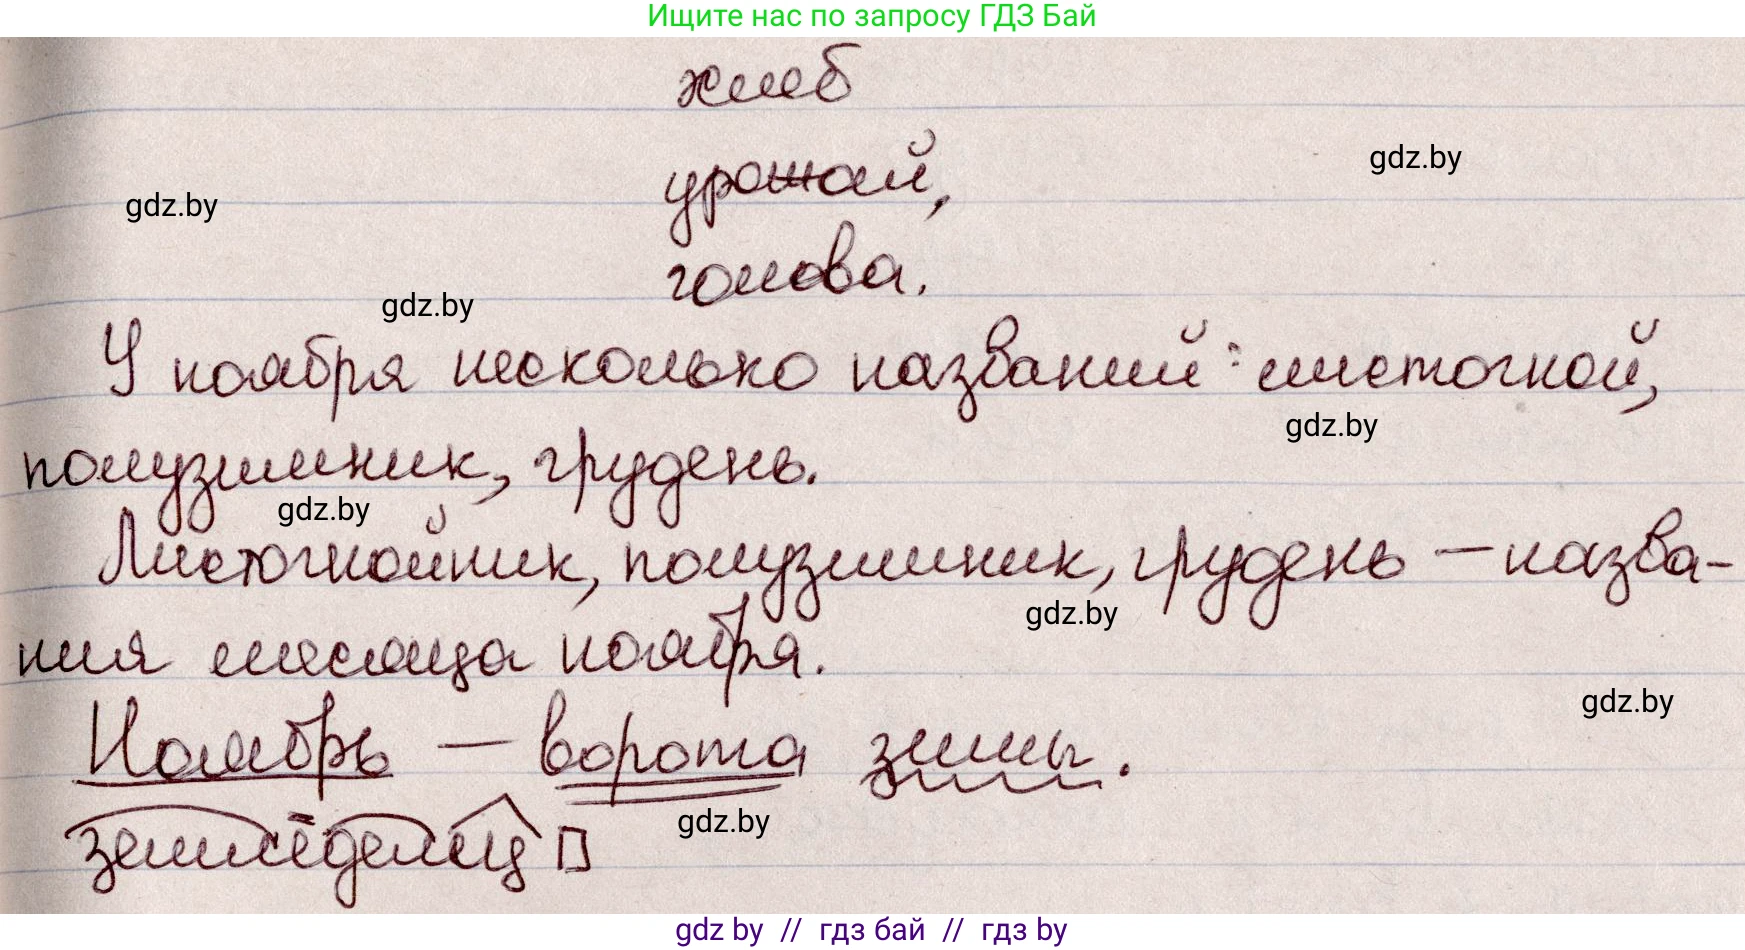 Ищите нас по запросу ГДЗ Бай
хлеб
gdz.by
урожай,
gdz.by
голова.
gdz.by
У ноября несколько названий: листогной,
gdz.by
полузимник, грудень.
gdz.by
Листогнойник, полузимник, грудень – назва-
gdz.by
ния месяца ноября.
gdz.by
Ноябрь – ворота зимы.
gdz.by
земледелец
gdz by // гдз бай // гдз by